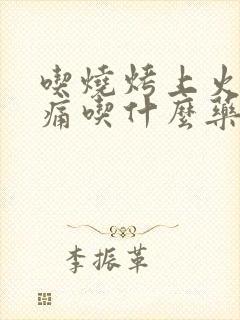 喫燒烤上火
痛喫什麼藥
李振革